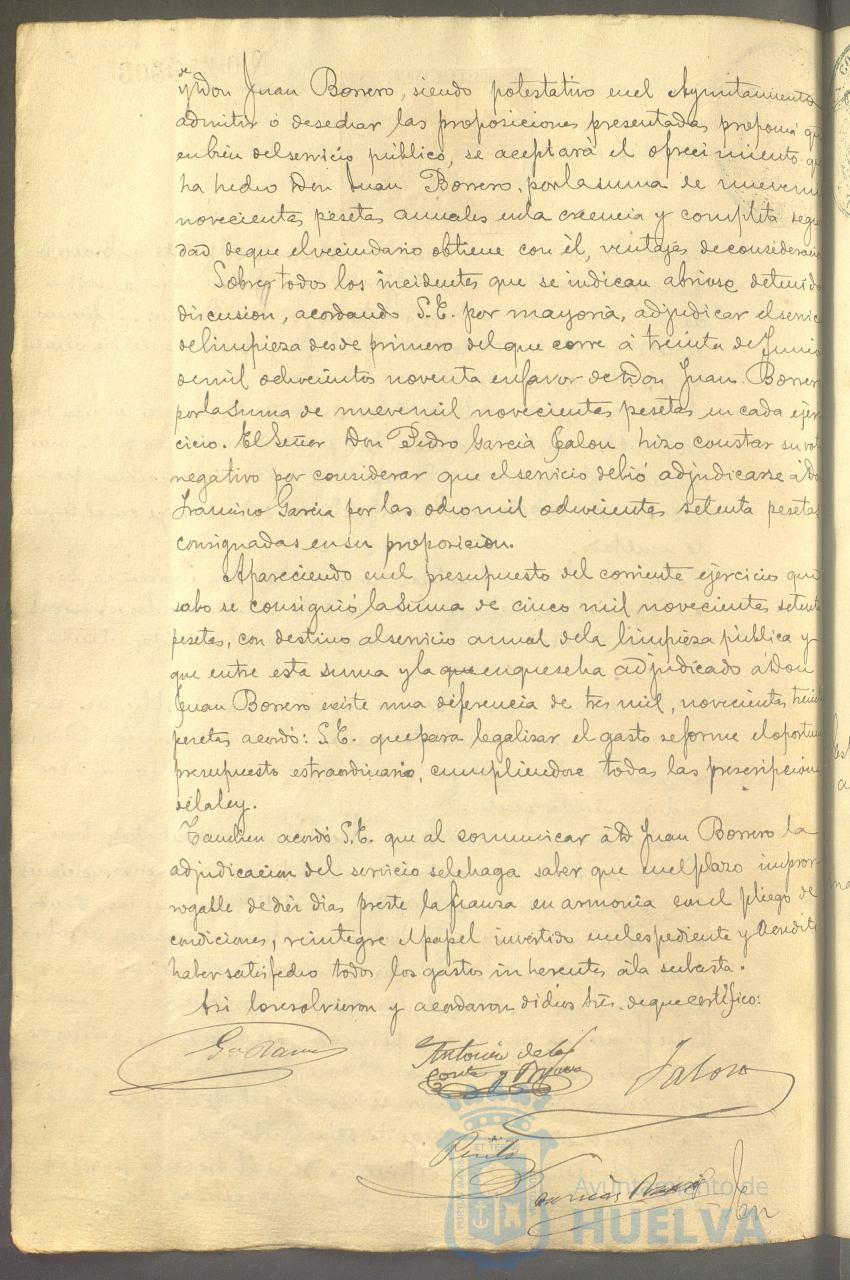 de
y Don Juan Borrero, siendo potestativo en el Ayuntamiento
admitir ó desechar las proposiciones presentadas proponia qu
en bien del servicio público, se aceptará el ofrecimiento qu
ha hecho Don Juan Borrero, por la suma de nueve mi
novecientas pesetas anuales en la creencia y completa segu
dad de que el vecindario obtiene con él, ventajas de consideracio
Sobre todos los incidentes que se indican abriose detenida
discusion, acordando S.E. por mayoria, adjudicar el servic
de limpieza desde primero del que corre á treinta de Junio
de mil ochocientos noventa en favor de Don Juan Borrero
por la suma de nueve mil novecientas pesetas en cada ejer
cicio. El Señor Don Pedro García Jalon hizo constar su vot
negativo por considerar que el servicio debió adjudicarse á Do
Francisco García por las ocho mil ochocientas setenta pesetas
consignadas en su proposicion.
Apareciendo en el presupuesto del corriente ejercicio que
solo se consignó la suma de cinco mil novecientas setenta
pesetas, con destino al servicio anual de la limpieza pública y
que entre esta suma y la que en que se ha adjudicado á Don
Juan Borrero existe una diferencia de tres mil, novecientas treinta
pesetas acordó: S.E. que para legalizar el gasto se forme el oportuno
presupuesto estraordinario, cumpliendose todas las prescripcione
de la ley.
Tambien acordó S.E. que al comunicar á D Juan Borrero la
adjudicacion del servicio se le haga saber que en el plazo impror
rogable de diez dias preste la fianza en armonia con el pliego de
condiciones, reintegre el papel invertido en el espediente y acredite
haber satisfecho todos los gastos inherentes á la subasta.
Asi lo resolvieron y acordaron dichos Sres. de que certifico:
Antonio de la
Corte y
Jalon
Ayuntamiento de
HUELVA